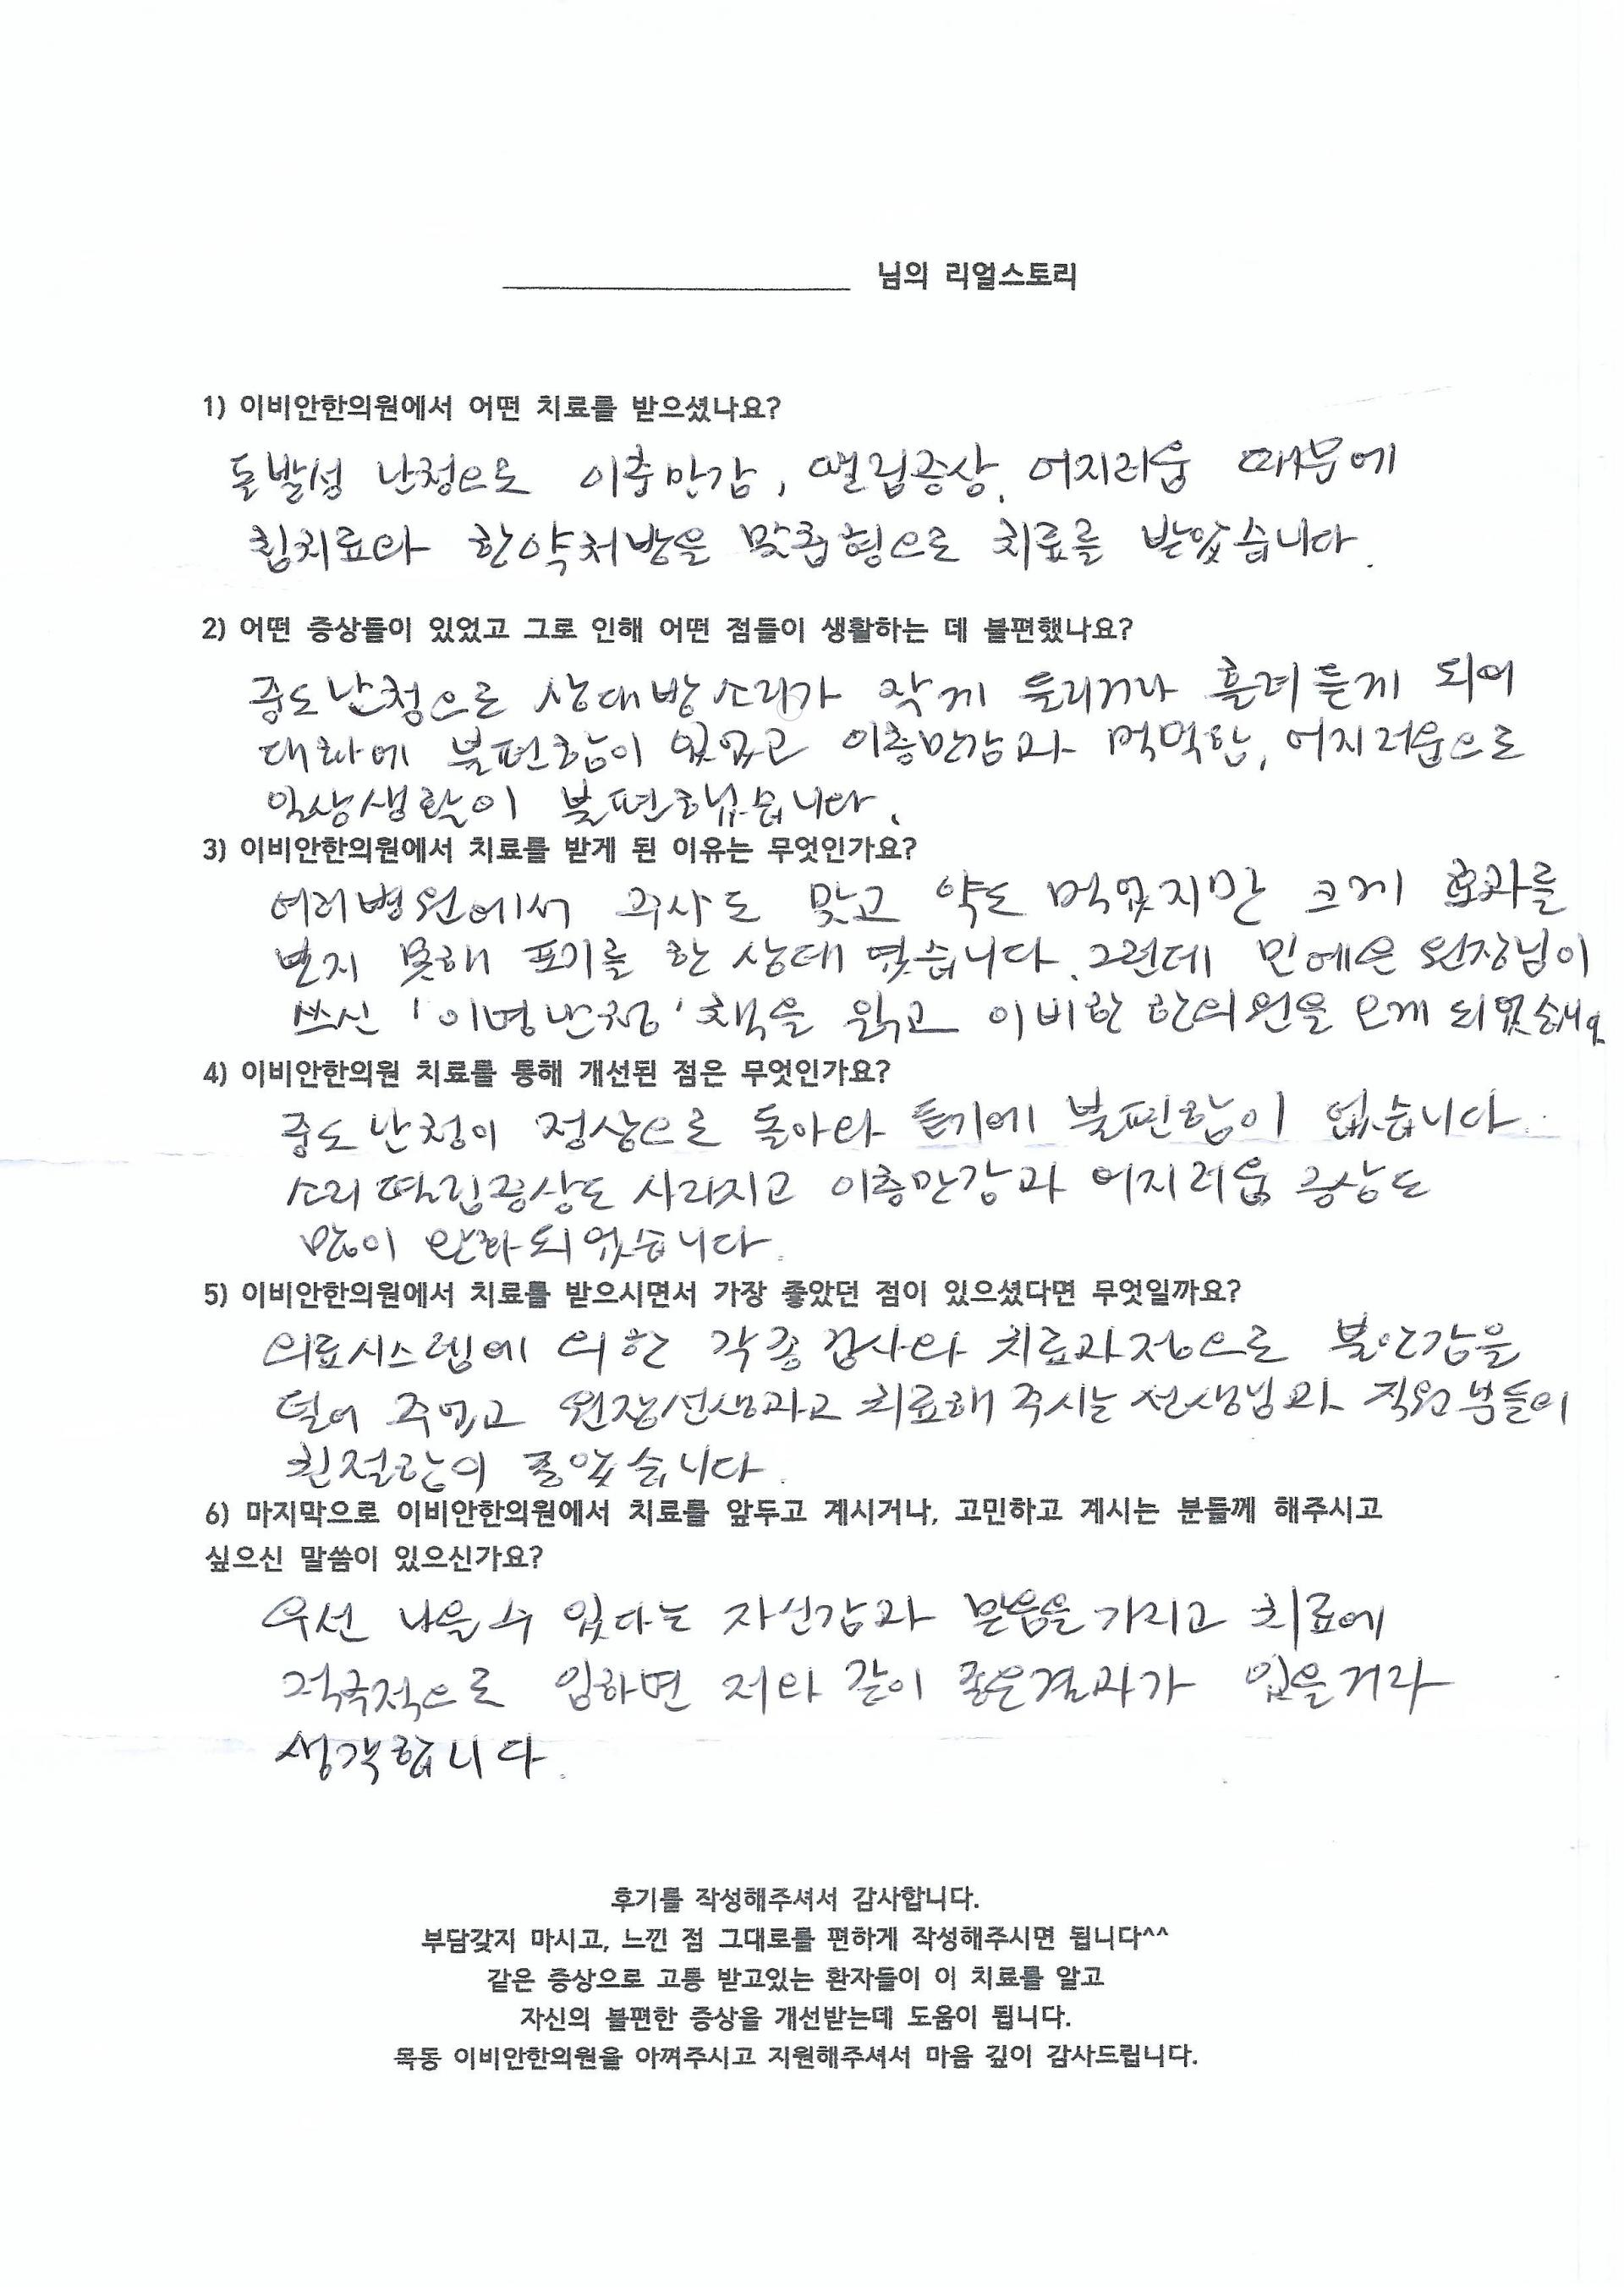 님의 리얼스토리
1) 이비안한의원에서 어떤 치료를 받으셨나요?
돌발성 난청으로 이충만감, 떨림증상, 어지러움 때문에
침치료와 한약처방을 맞춤형으로 치료를 받았습니다.
2) 어떤 증상들이 있었고 그로 인해 어떤 점들이 생활하는 데 불편했나요?
중도난청으로 상대방소리가 작게 들리거나 흘려듣게 되어
대화에 불편함이 있었고 이충만감과 먹먹함, 어지러움으로
일상생활이 불편했습니다.
3) 이비안한의원에서 치료를 받게 된 이유는 무엇인가요?
여러병원에서 주사도 맞고 약도 먹었지만 크게 효과를
받지 못해 포기를 한 상태 였습니다. 그런데 민예은 원장님이
쓰신 '이명난청' 책을 읽고 이비한 한의원을 오게 되었습니다
4) 이비안한의원 치료를 통해 개선된 점은 무엇인가요?
중도난청이 정상으로 돌아와 듣기에 불편함이 없습니다.
소리떨림증상도 사라지고 이충만감과 어지러움 증상도
많이 완화되었습니다.
5) 이비안한의원에서 치료를 받으시면서 가장 좋았던 점이 있으셨다면 무엇일까요?
의료시스템에 의한 각종검사와 치료과정으로 불안감을
덜어 주었고 원장선생과 치료해 주시는 선생님과 직원분들이
친절함이 좋았습니다.
6) 마지막으로 이비안한의원에서 치료를 앞두고 계시거나, 고민하고 계시는 분들께 해주시고
싶으신 말씀이 있으신가요?
우선 나을수 있다는 자신감과 믿음을 가지고 치료에
적극적으로 임하면 저와 같이 좋은결과가 있을거라
생각합니다.
후기를 작성해주셔서 감사합니다.
부담갖지 마시고, 느낀 점 그대로를 편하게 작성해주시면 됩니다^^
같은 증상으로 고통 받고있는 환자들이 이 치료를 알고
자신의 불편한 증상을 개선받는데 도움이 됩니다.
목동 이비안한의원을 아껴주시고 지원해주셔서 마음 깊이 감사드립니다.